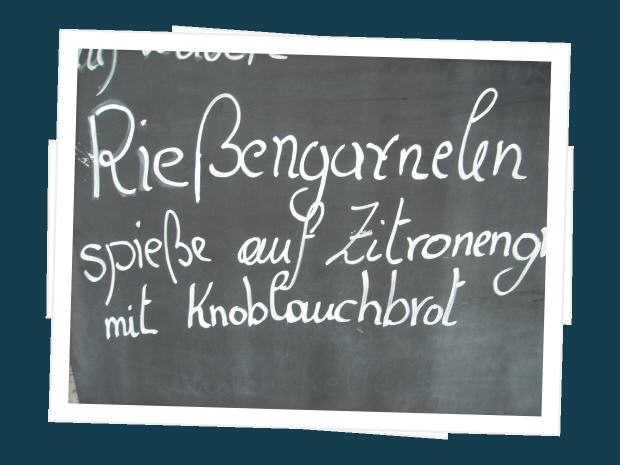 auf
Rießengarnelen
spieße auf Zitroneng
mit Knoblauchbrot